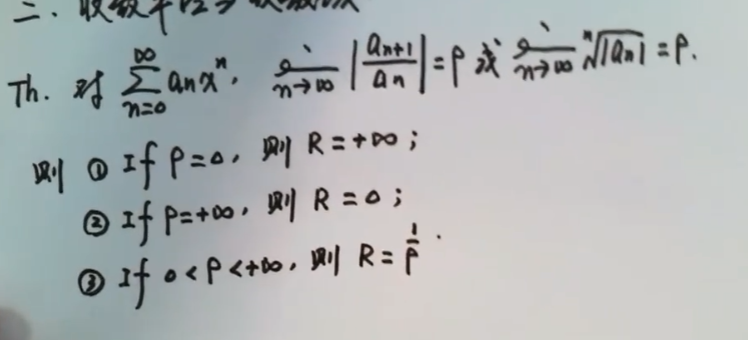 二. 收敛半径与收敛域
Th. 对 \sum_{n=0}^{\infty} a_n x^n, \lim_{n→∞} |\frac{a_{n+1}}{a_n}| = ρ 或 \lim_{n→∞} \sqrt[n]{|a_n|} = ρ.
则 ① If ρ=0, 则 R=+∞;
② If ρ=+∞, 则 R=0;
③ If 0<ρ<+∞, 则 R=\frac{1}{ρ}.